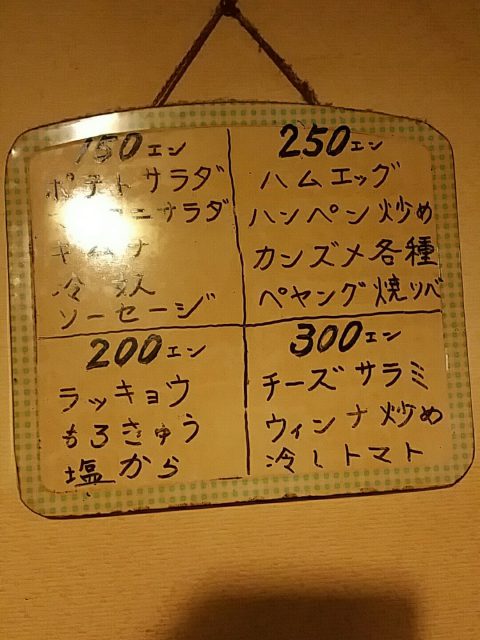 150エン
ポテトサラダ
マカロニサラダ
キムチ
冷奴
ソーセージ
200エン
ラッキョウ
もろきゅう
塩から
250エン
ハムエッグ
ハンペン炒め
カンズメ各種
ペヤング焼ソバ
300エン
チーズサラミ
ウィンナ炒め
冷しトマト